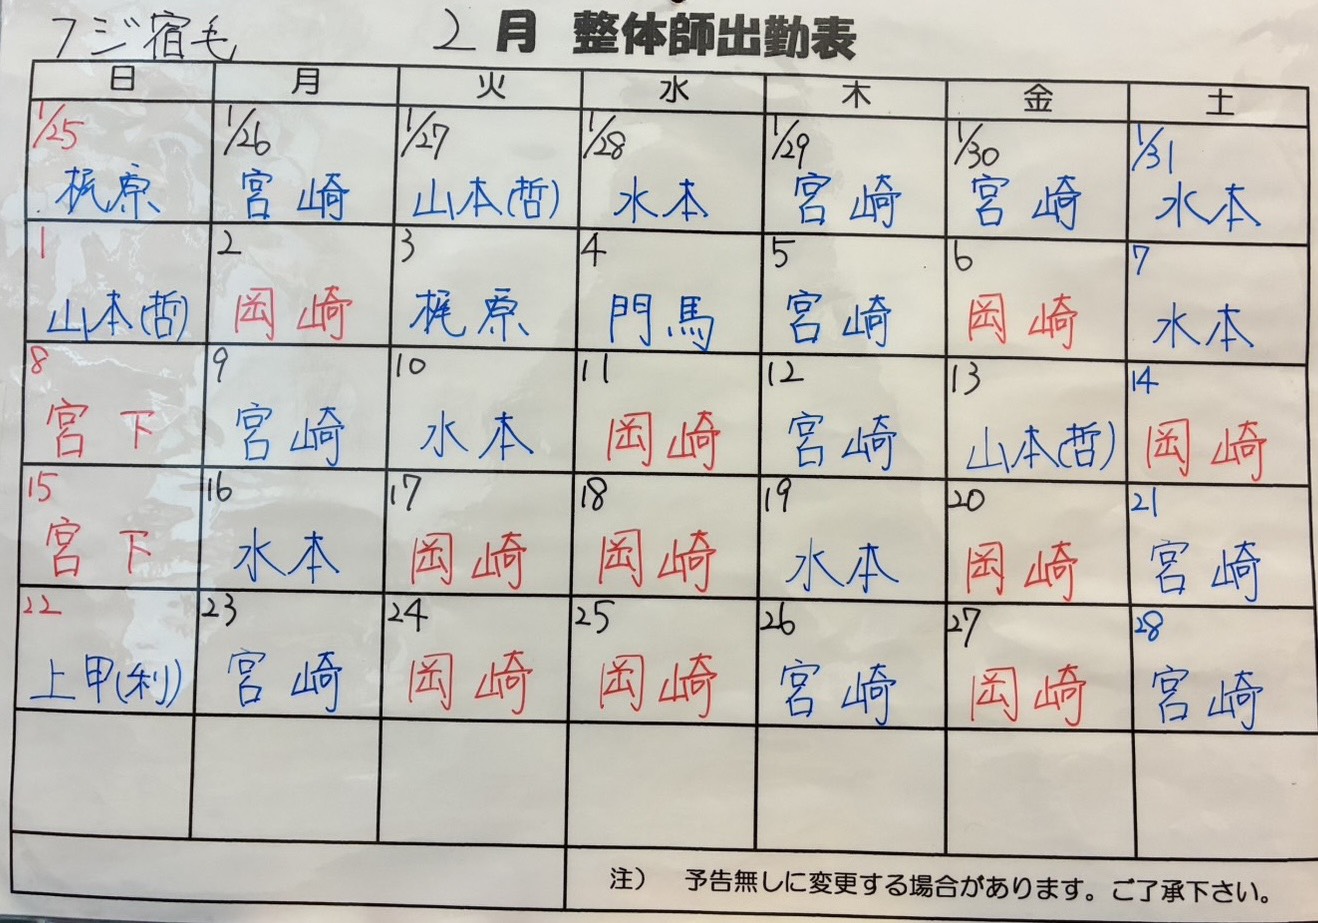 フジ宿毛 2月 整体師出勤表
日 月 火 水 木 金 土
1/25 1/26 1/27 1/28 1/29 1/30 1/31
梶原 宮崎 山本(哲) 水本 宮崎 宮崎 水本
1 2 3 4 5 6 7
山本(哲) 岡崎 梶原 門馬 宮崎 岡崎 水本
8 9 10 11 12 13 14
宮下 宮崎 水本 岡崎 宮崎 山本(哲) 岡崎
15 16 17 18 19 20 21
宮下 水本 岡崎 岡崎 水本 岡崎 宮崎
22 23 24 25 26 27 28
上甲(利) 宮崎 岡崎 岡崎 宮崎 岡崎 宮崎
注） 予告無しに変更する場合があります。ご了承下さい。